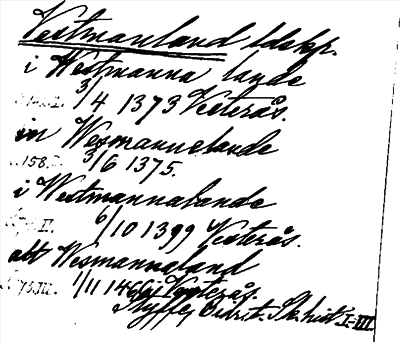 Vestmanland ldskp.
i Westmanna lande
3/4 1373 Vesterås.
in Wesmannelande
3/6 1375.
158.
i Westmannalande
6/10 1399 Vesterås.
II.
alt Wesmannaland
1/11 146 Vesterås.
75.III.
Styffe, Bidr. t. Sk. hist. I-III